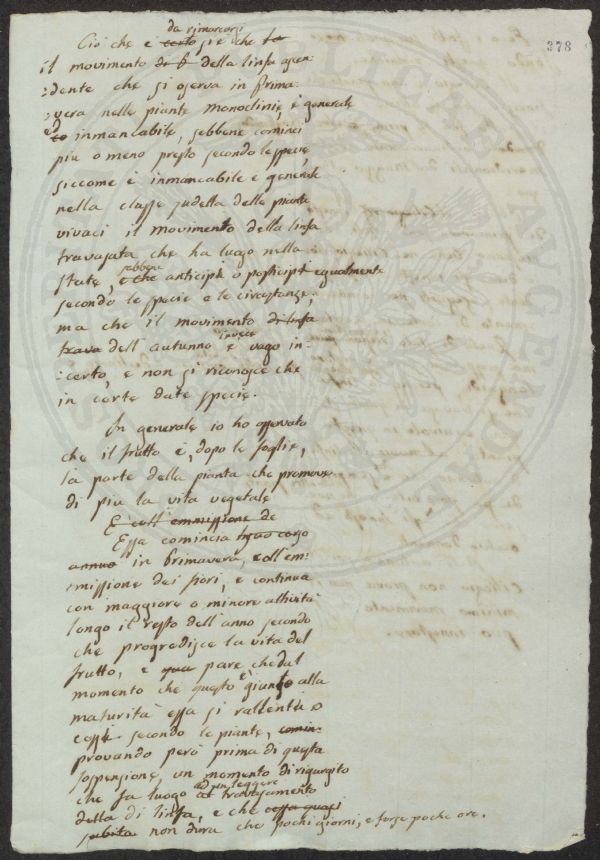 da rimarcarsi
Ciò che è certo si è che la
378
il movimento di f della linfa ascen-
:dente che si osserva in Prima-
:vera nelle piante monoclinie, è generale
ed inmancabile, sebbene cominci
più o meno presto secondo le specie,
siccome è inmancabile e generale
nella classe sudetta delle piante
vivaci il movimento della linfa
travasata che ha luogo nella
sebbene
state, e che anticipi o posticipi egualmente
secondo le specie e le circostanze.
ma che il movimento di linfa
invece
trava dell'autunno è vago in-
:certo, e non si riconosce che
in certe date specie.
In generale io ho osservato
che il frutto è, dopo le foglie,
la parte della pianta che promove
di più la vita vegetale
E coll'emmissione de
Essa comincia il suo corso
annuo in Primavera, coll'em-
missione dei fiori, e continua
con maggiore o minore attività
longo il resto dell'anno secondo
che progredisce la vita del
frutto, e qua pare che dal
momento che questo è giunto alla
maturità essa si rallenti o
cessi secondo le piante, comin-
provando però prima di questa
sospensione, un momento di rigurgito
ad un leggere
che fa luogo al travasamento
della di linfa, e che cessa quasi
subito non dura che pochi giorni, e forse poche ore.